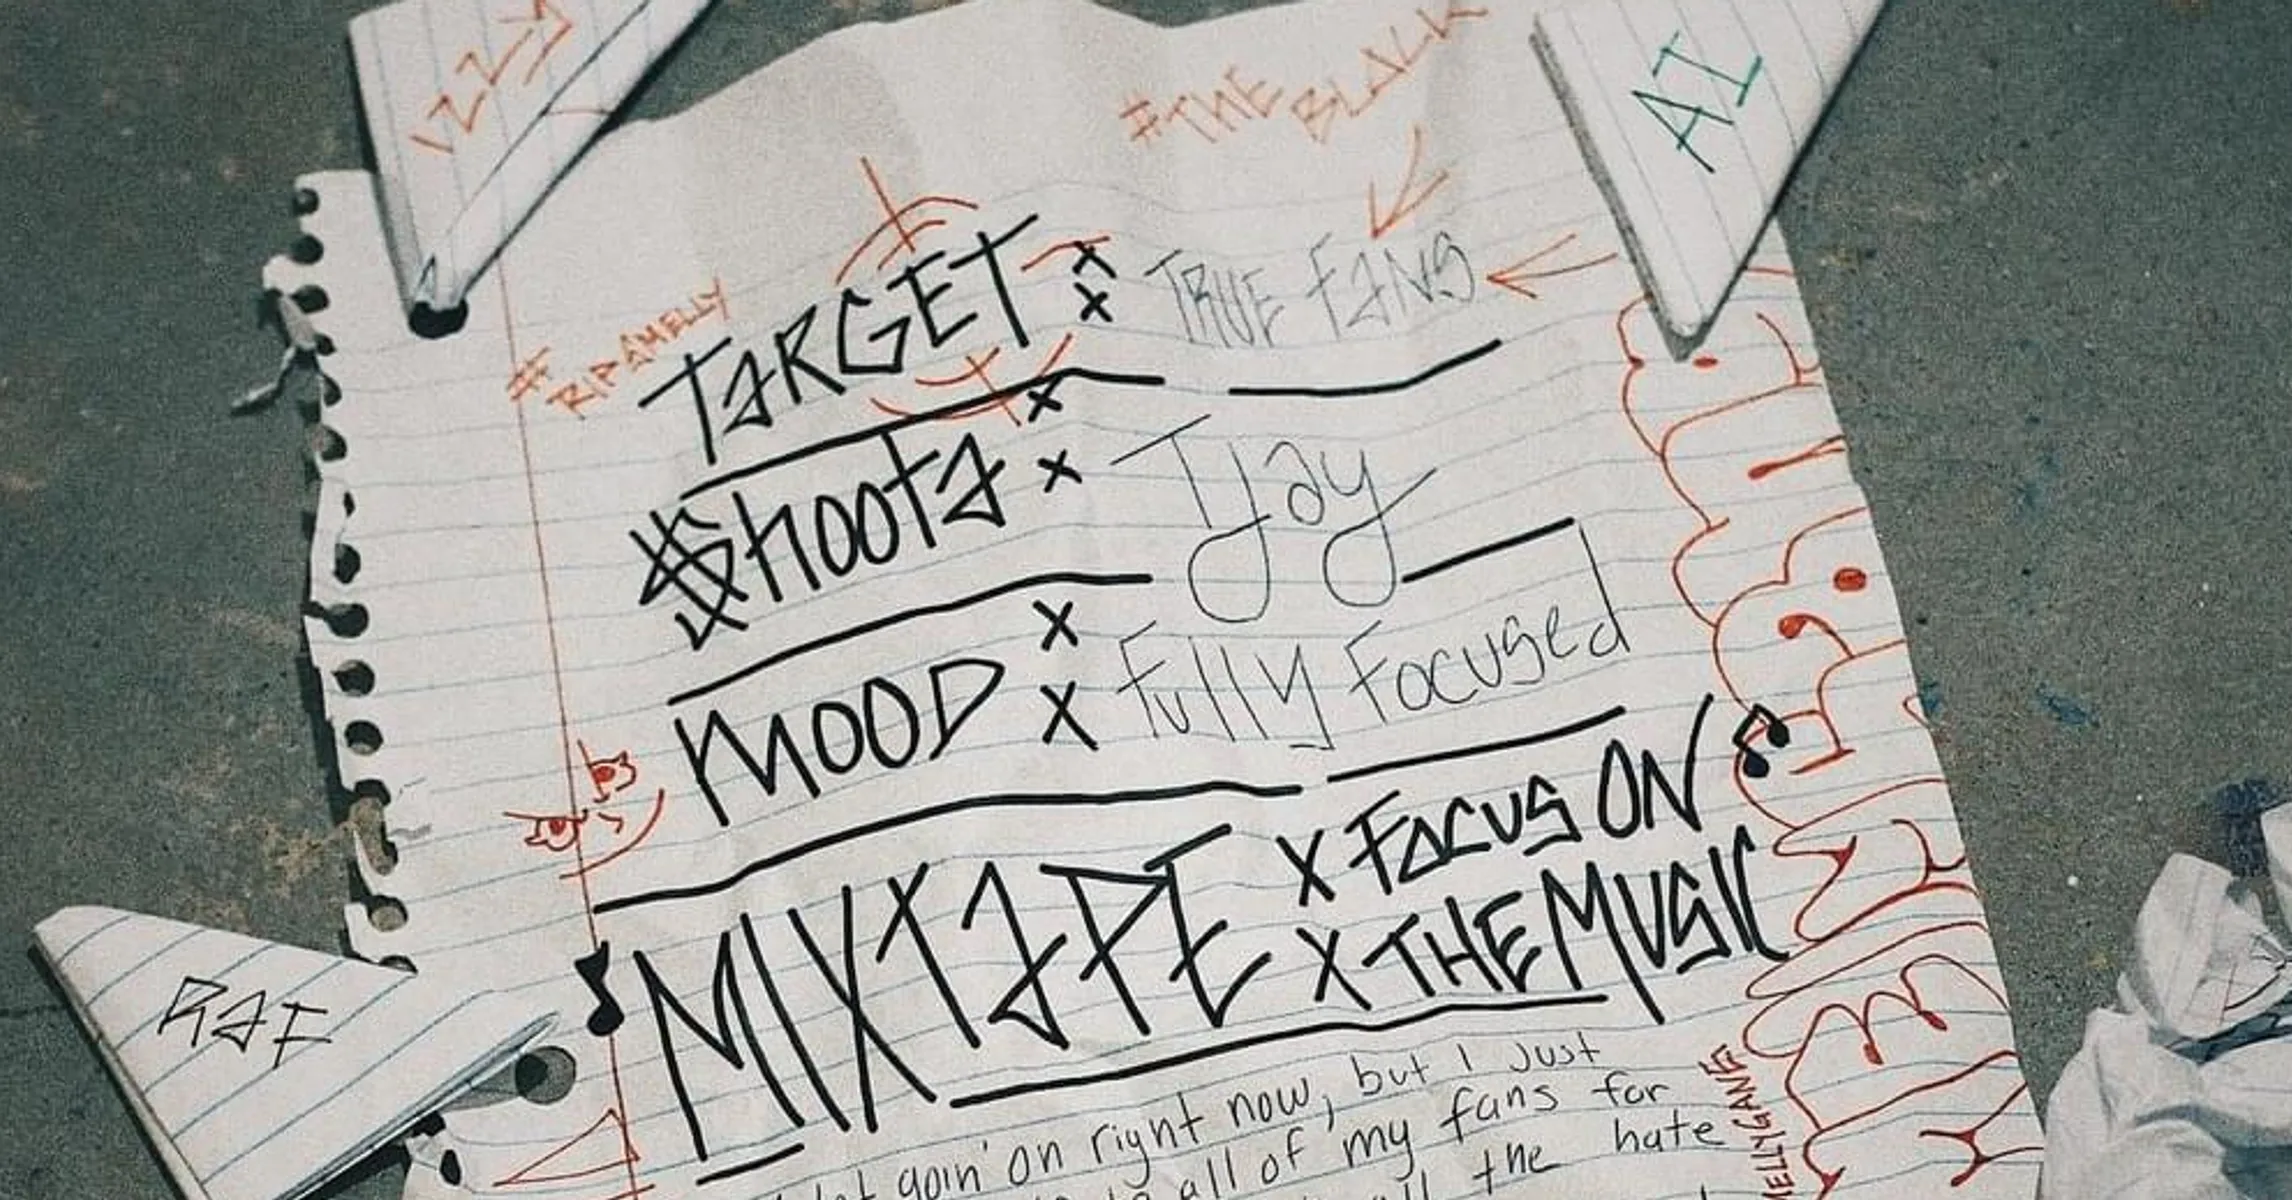 IZZY
#THE BLOCK
AI
#RIP4MELLY
TARGET x x TRUE FANS
$hoota x x Tjay
MOOD x x Fully Focused
MIXTAPE x FOCUS ON
x THE MUSIC
RAF
goin' on right now, but I just
all of my fans for
all the hate
MELLYGANG